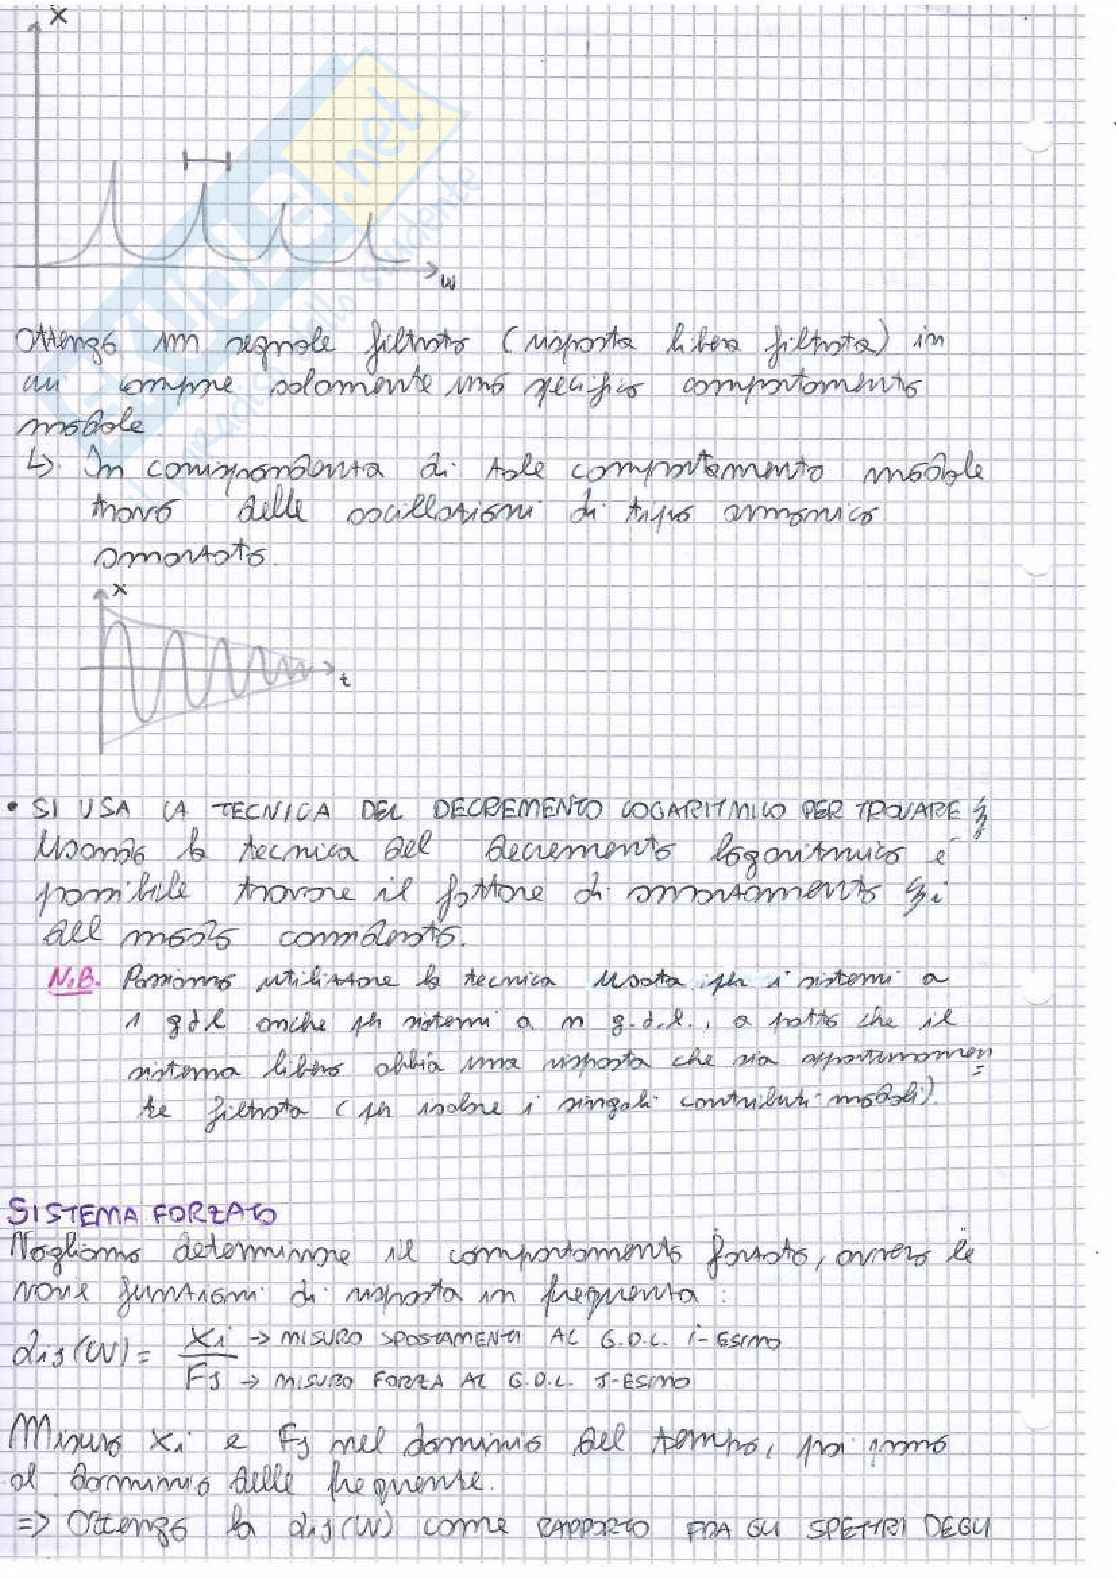 X
ω
Ottengo un segnale filtrato (risposta libera filtrata) in
cui compare solamente uno specifico comportamento
modale.
↳ In corrispondenza di tale comportamento modale
trovo delle oscillazioni di tipo armonico
smorzato.
x
t
• SI USA LA TECNICA DEL DECREMENTO LOGARITMICO PER TROVARE ξ
Usando la tecnica del decremento logaritmico è
possibile trovare il fattore di smorzamento ξi
del modo considerato.
N.B. Possiamo utilizzare la tecnica usata per i sistemi a
1 gdl anche per sistemi a n g.d.l., a patto che il
sistema libero abbia una risposta che sia opportunamen=
te filtrata (per isolare i singoli contributi modali).
SISTEMA FORZATO
Vogliamo determinare il comportamento forzato, ovvero le
varie funzioni di risposta in frequenza:
αij(ω) = Xi → MISURO SPOSTAMENTI AL G.D.L. i-ESIMO
Fj → MISURO FORZA AL G.D.L. J-ESIMO
Misuro xi e Fj nel dominio del tempo, poi passo
al dominio delle frequenze.
=> Ottengo la αij(ω) come RAPPORTO FRA GLI SPETTRI DEGLI